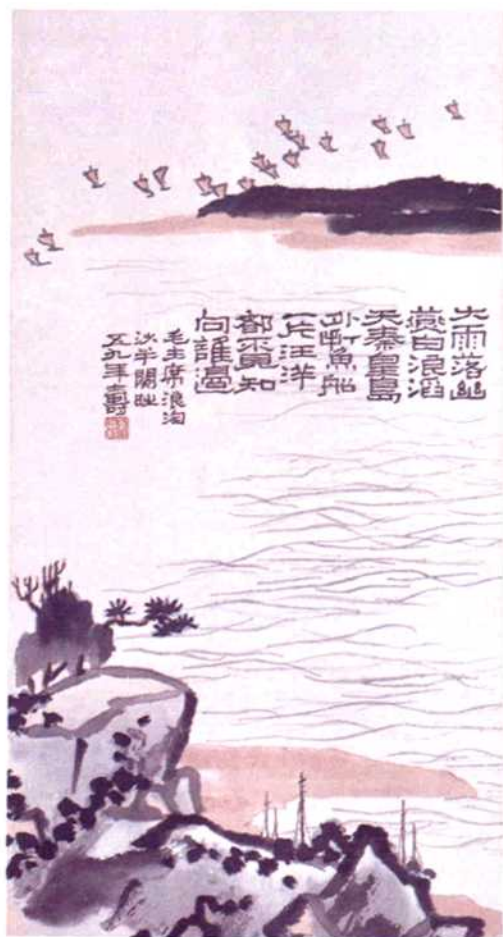 大雨落幽
燕白浪滔
天秦皇島
外打魚船
一片汪洋
都不見知
向誰邊
毛主席浪淘
沙半闋
五九年壽